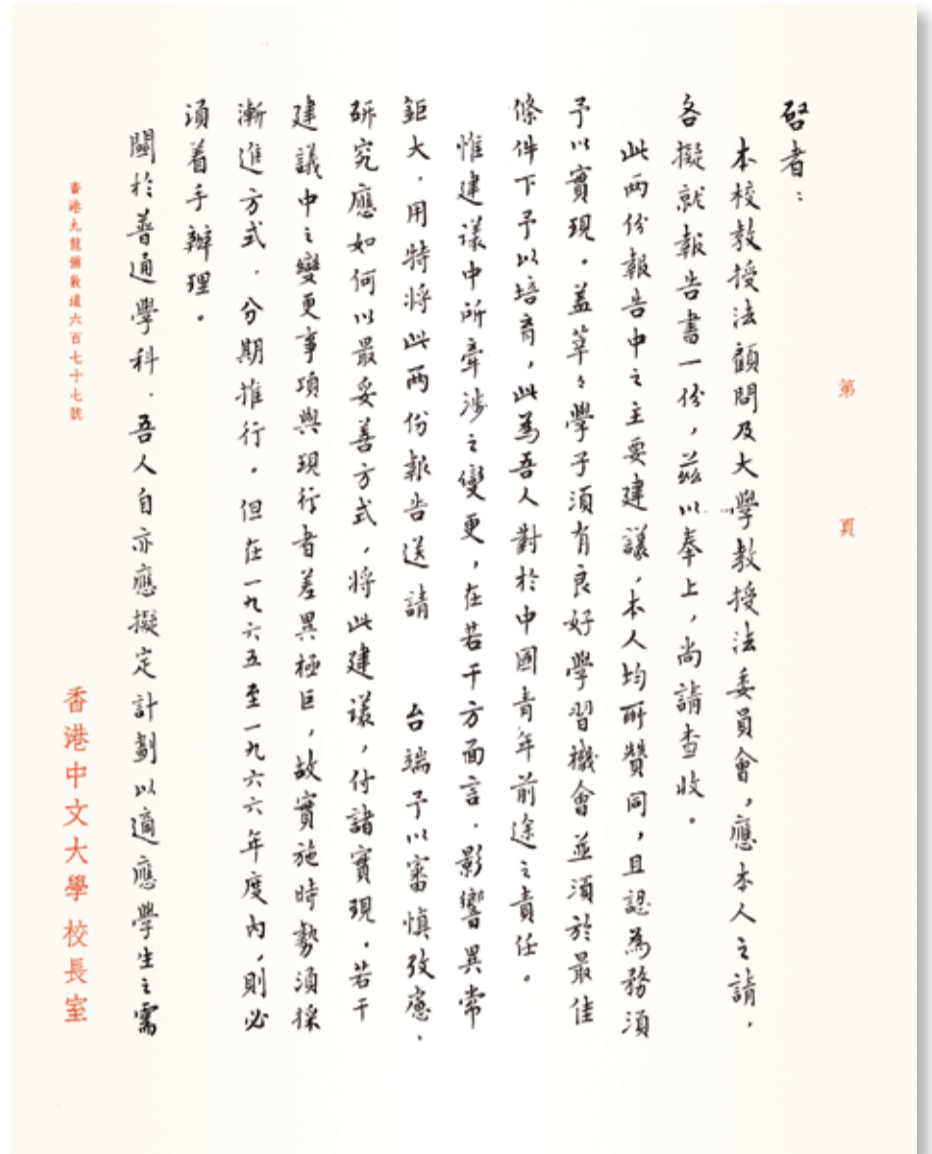 第　頁
啓者：
本校教授法顧問及大學教授法委員會，應本人之請，
各擬就報告書一份，茲以奉上，尚請查收。
此兩份報告中之主要建議，本人均所贊同，且認為務須
予以實現。蓋莘々學子須有良好學習機會並須於最佳
條件下予以培育，此為吾人對於中國青年前途之責任。
惟建議中所牽涉之變更，在若干方面言，影響異常
鉅大，用特將此兩份報告送請　台端予以審慎攷慮，
研究應如何以最妥善方式，將此建議，付諸實現。若干
建議中之變更事項與現行者差異極巨，故實施時勢須採
漸進方式，分期推行。但在一九六五至一九六六年度內，則必
須着手辦理。
關於普通學科，吾人自亦應擬定計劃以適應學生之需
香港中文大學 校長室
香港九龍彌敦道六百七十七號